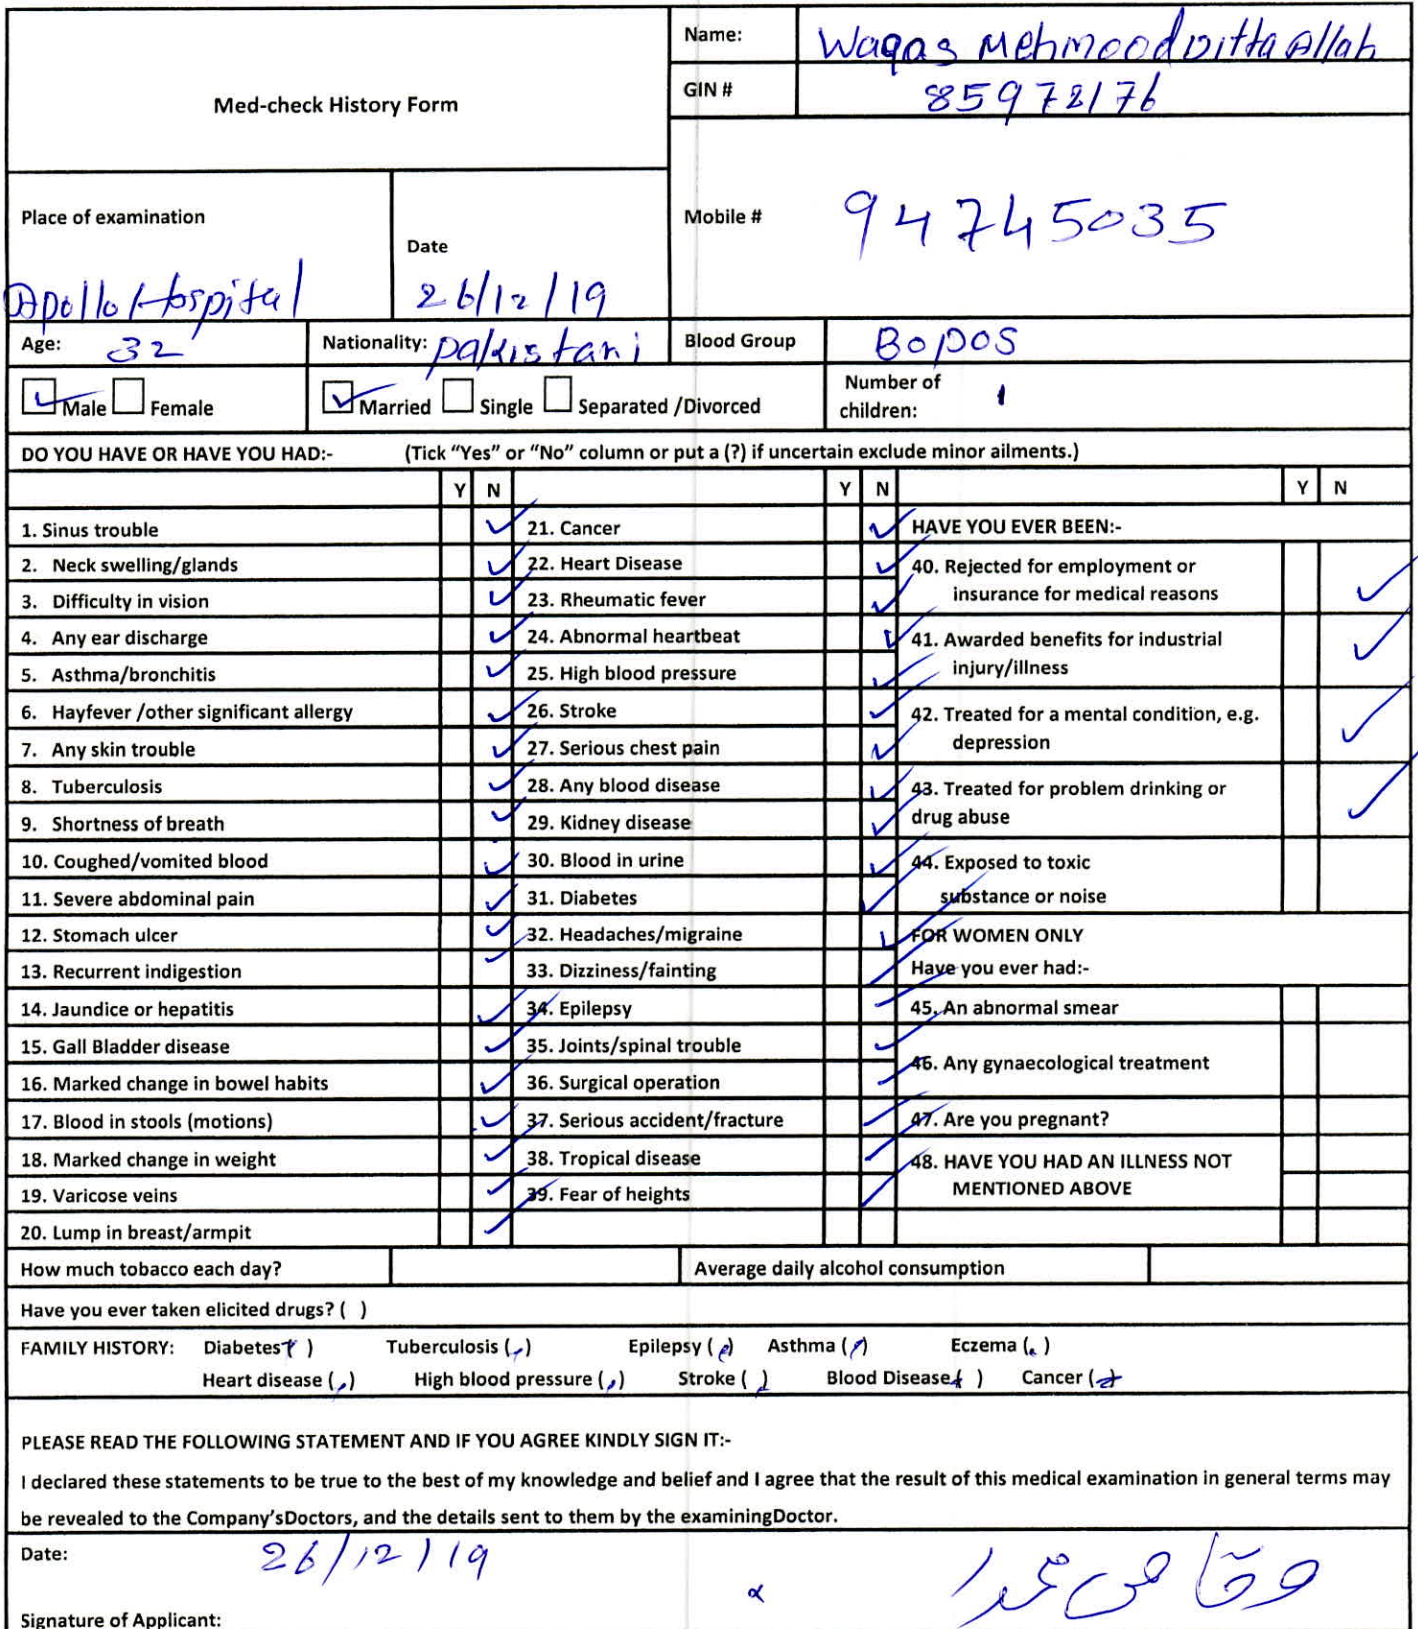 Med-check History Form
Name: Waqas Mehmood Ditta Allah
GIN # 85972176
Mobile # 94745035
Place of examination
Apollo Hospital
Date
26/12/19
Age: 32 Nationality: pakistani Blood Group BopoS
Male Female Married Single Separated /Divorced Number of
children: 1
DO YOU HAVE OR HAVE YOU HAD:- (Tick “Yes” or “No” column or put a (?) if uncertain exclude minor ailments.)
Y N Y N Y N
1. Sinus trouble ✓
2. Neck swelling/glands ✓
3. Difficulty in vision ✓
4. Any ear discharge ✓
5. Asthma/bronchitis ✓
6. Hayfever /other significant allergy ✓
7. Any skin trouble ✓
8. Tuberculosis ✓
9. Shortness of breath ✓
10. Coughed/vomited blood ✓
11. Severe abdominal pain ✓
12. Stomach ulcer ✓
13. Recurrent indigestion ✓
14. Jaundice or hepatitis ✓
15. Gall Bladder disease ✓
16. Marked change in bowel habits ✓
17. Blood in stools (motions) ✓
18. Marked change in weight ✓
19. Varicose veins ✓
20. Lump in breast/armpit ✓
21. Cancer ✓
22. Heart Disease ✓
23. Rheumatic fever ✓
24. Abnormal heartbeat ✓
25. High blood pressure ✓
26. Stroke ✓
27. Serious chest pain ✓
28. Any blood disease ✓
29. Kidney disease ✓
30. Blood in urine ✓
31. Diabetes ✓
32. Headaches/migraine ✓
33. Dizziness/fainting ✓
34. Epilepsy ✓
35. Joints/spinal trouble ✓
36. Surgical operation ✓
37. Serious accident/fracture ✓
38. Tropical disease ✓
39. Fear of heights ✓
HAVE YOU EVER BEEN:-
40. Rejected for employment or
insurance for medical reasons ✓
41. Awarded benefits for industrial
injury/illness ✓
42. Treated for a mental condition, e.g.
depression ✓
43. Treated for problem drinking or
drug abuse ✓
44. Exposed to toxic
substance or noise
FOR WOMEN ONLY
Have you ever had:-
45. An abnormal smear
46. Any gynaecological treatment
47. Are you pregnant?
48. HAVE YOU HAD AN ILLNESS NOT
MENTIONED ABOVE
How much tobacco each day? Average daily alcohol consumption
Have you ever taken elicited drugs? ( )
FAMILY HISTORY: Diabetes ( ) Tuberculosis ( ) Epilepsy ( ) Asthma ( ) Eczema ( )
Heart disease ( ) High blood pressure ( ) Stroke ( ) Blood Disease ( ) Cancer ( )
PLEASE READ THE FOLLOWING STATEMENT AND IF YOU AGREE KINDLY SIGN IT:-
I declared these statements to be true to the best of my knowledge and belief and I agree that the result of this medical examination in general terms may
be revealed to the Company'sDoctors, and the details sent to them by the examiningDoctor.
Date: 26/12/19
Signature of Applicant: